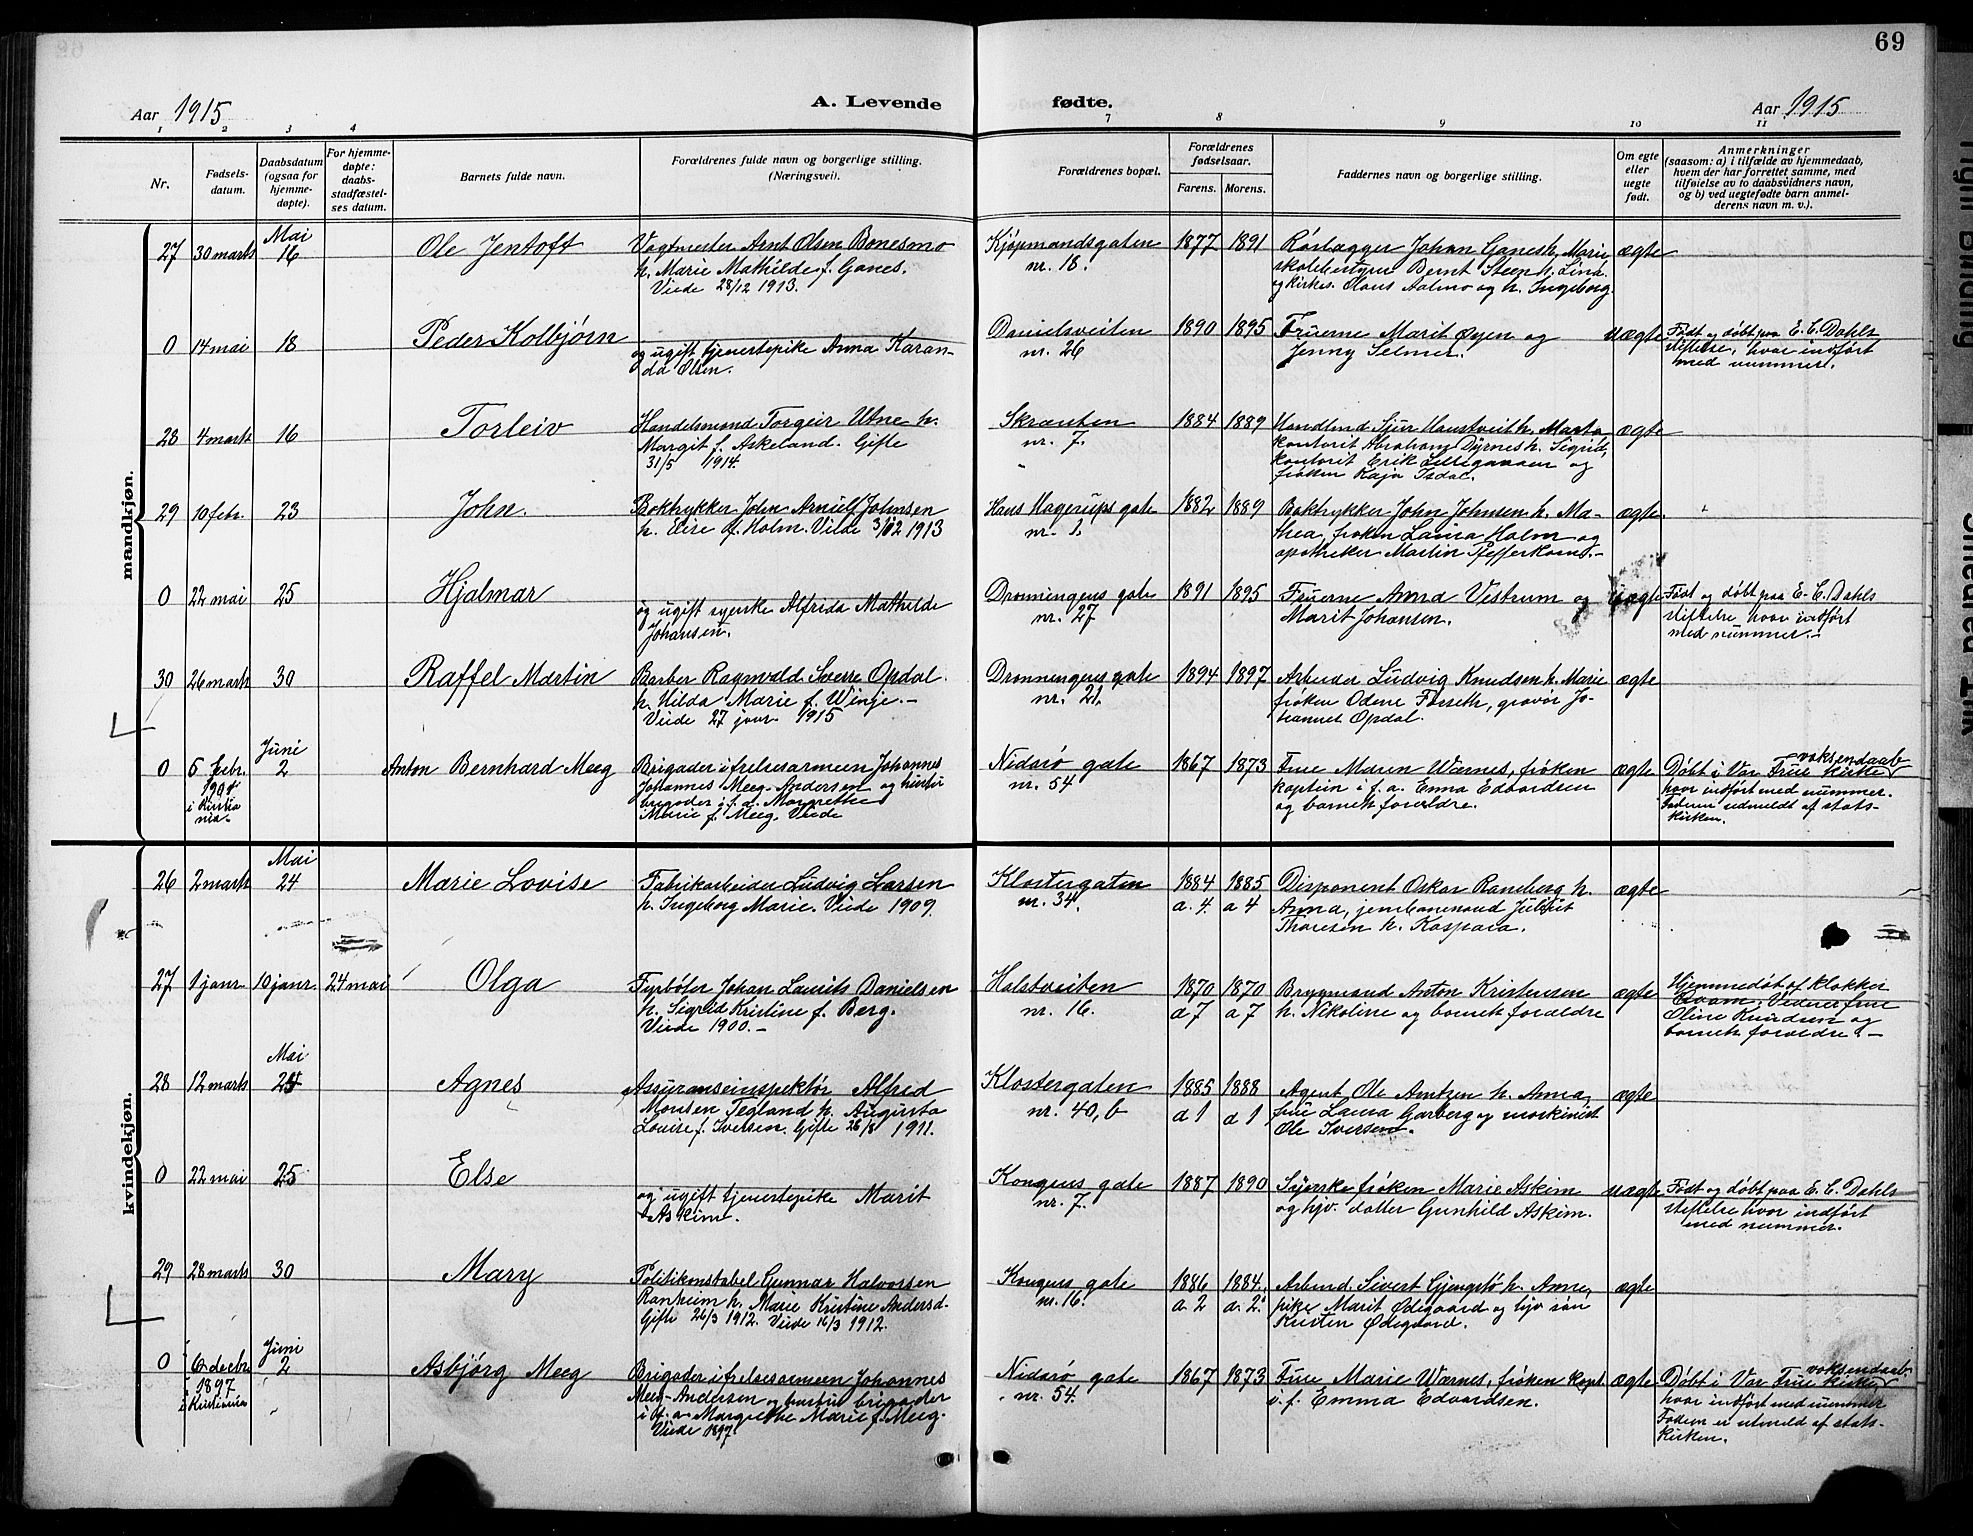 69
Aar 1915
A. Levende
fødte.
Aar 1915
1 2 3 4 7 8 9 10 11
Nr.
Fødsels-
datum.
Daabsdatum
(ogsaa for
hjemme-
døpte).
For hjemme-
døpte:
daabs-
stadfæstel-
ses datum.
Barnets fulde navn.
Forældrenes fulde navn og borgerlige stilling.
(Næringsvei).
Forældrenes bopæl.
Forældrenes
fødselsaar.
Farens. Morens.
Faddernes navn og borgerlige stilling.
Om egte
eller
uegte
født.
Anmerkninger
(saasom: a) i tilfælde av hjemmedaab,
hvem der har forrettet samme, med
tilføielse av to daabsvidners navn,
og b) ved uegtefødte barn anmel-
derens navn m. v.).
mandkjøn.
27 30 marts Mai 16 Ole Jentoft
Vagtmester Arnt Olsen Bonesmo
h. Marie Mathilde f. Ganes.
Viede 28/12 1913.
Kjøpmandsgaten
nr. 18.
1877 1891
Rørlægger Johan Ganes h. Marie
skolebestyrer Bernt Steen h. Lina
og kirkes. Olaus Aalmo og h. Ingeborg.
ægte
0 14 mai 18 Peder Kolbjørn
og ugift tjenestepike Anna Karan-
da Olsen.
Danielsveiten
nr. 26
1890 1895
Fruerne Marit Øyen og
Jenny Selmer.
uægte
Født og døbt paa E. C. Dahls
stiftelse, hvor indført
med nummer.
28 4 marts 16 Torleiv
Handelsmand Torgeir Utne h.
Margit f. Askeland. Gifte
31/5 1914.
Skraenten
nr. 7.
1884 1889
Handlmd Sjur Haustveit h. Marta
kontorist Abraham Dyrnes h. Sigrid,
kontorist Erik
frøken Kaja Isdal.
ægte
29 10 febr. 23 John.
Boktrykker John Arnulf Johnsen
h. Elise f. Holm. Viede 3/12 1913
Hans Hagerups gate
nr. 1.
1882 1889
Boktrykker John Johnsen h. Ma-
thea, frøken Laura Holm og
apotheker Martin Pfefferkorn.-
ægte.
0 22 mai 25 Hjalmar
og ugift syerske Alfrida Mathilde
Johansen.
Dronningens gate
nr. 27
1891 1895
Fruerne Anna Vestrum og
Marit Johansen.
uægte
Født og døbt paa E. C. Dahls
stiftelse hvor indført
med nummer.-
30 26 marts 30 Raffel Martin
Barber Ragnvald Sverre Opdal
h. Hilda Marie f. Winje.-
Viede 27 janr. 1915
Dronningens gate
nr. 21.
1894 1897
Arbeider Ludvig Knudsen h. Marie
frøken Odene Forseth, gravør Jo-
hannes Opdal.
ægte
0 5 febr. 1901 i Kristia nia- Juni 2 Anton Bernhard Meeg
Brigader i frelsesarmeen Johannes
Johannes Meeg-Andersen og hustru
brigader i f. a. Margrethe
Marie f. Meeg. Viede
Nidarø gate
nr. 54
1867 1873
Frue Maren Wærnes, frøken
kaptein i f. a. Emma Edvardsen
og barnets forældre.
ægte
voksendaab
Døbt i Vor Frue kirke
hvor indført med nummer.
Faderen udmeldt af stats-
kirken.
kvindekjøn.
26 2 marts Mai 24 Marie Lovise
Fabrikarbeider Ludvig Larsen
h. Ingeborg Marie. Viede 1909.
Klostergaten
nr. 34.
1884 1885
a. 4. a 4
Disponent Oskar Raneberg h.
Anna, jernbanemand Julius
Thoresen h. Kaspara.
ægte
27 1 janr. 10 janr. 24 mai Olga
Fyrbøter Johan Laurits Danielsen
h. Sigrid Kristine f. Berg.
Viede 1900.-
Halstveiten
nr. 16.
1870 1870
a 7 a 7
Brygmand Anton Kristensen
h. Nikoline og barnets forældre
ægte
Hjemmedøbt af klokker
Kvam. Vidner frue
Oline Knudsen og
barnets forældre.-
28 12 marts Mai 24 Agnes
Assuranseinspektør Alfred
Monsen Tegland h. Augusta
Louise f. Iversen. Gifte 26/8 1911.
Klostergaten
nr. 40, b
1885 1888
a 1 a 1
Agent Ole Arntzen h. Anna,
frue Laura Garberg og maskinist
Ole Iversen.
ægte
0 22 mai 25 Else
og ugift tjenestepike Marit
Askim.
Kongens gate
nr. 7.
1887 1890
Syerske frøken Marie Askim
og hjv. datter Gunhild Askim.
uægte
Født og døbt paa E. C. Dahls
stiftelse hvor indført
med nummer.
29 28 marts 30 Mary
Politikonstabel Gunnar Halvorsen
Ranheim h. Marie Kristine Andersd.
Gifte 26/3 1912. Viede 16/3 1912.
Kongens gate
nr. 16.
1886 1884.
a. 2 a. 2.
Arbmd. Sivert Gjengstø h. Anne,
pike Marit Ødegaard og hjv søn
Kristen Ødegaard.
ægte
0 6 decbr. 1897 i Kristiania Juni 2 Asbjørg Meeg
Brigader i frelsesarmeen Johannes
Meeg-Andersen og hustru brigader
i f. a. Margrethe Marie f. Meeg.
Viede 1897.
Nidarø gate
nr. 54.
1867 1873
Frue Marie Wærnes, frøken kapt.
i. f. Emma Edvardsen.
ægte
voksendaab.
Døbt i Vor Frue kirke
hvor indført med nummer
Faderen er utmeld af stats-
kirken.